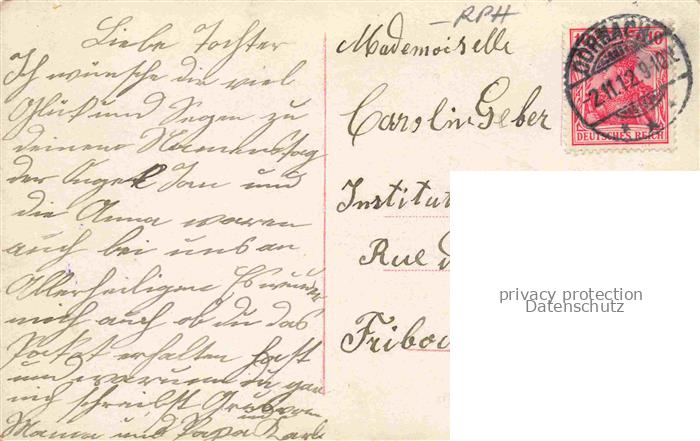 Liebe Tochter
Ich wünsche dir viel
Glück und Segen zu
deinem Namenstag
der Engel Jan und
die Anna waren
auch bei uns an
Allerheiligen Es wundert
mich auch ob du das
Paket erhalten hast
und warum du gar
nich schreibst Gruss von
Mama und Papa und Karl
RPH
Mademoiselle
Carolin Geber
Institut
Rue d
Fribo
DORNACH
-2.11.12.9-10
10 10
DEUTSCHES REICH
privacy protection
Datenschutz